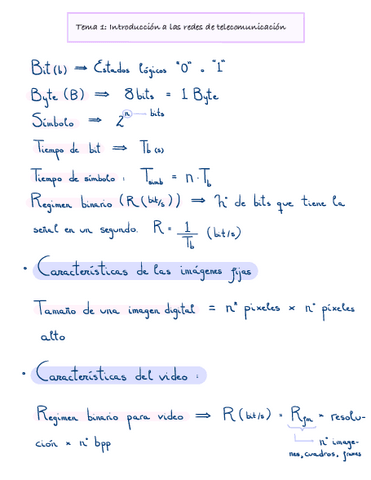 Tema 1: Introducción a las redes de telecomunicación
Bit (b) → Estados lógicos "0" o "1"
Byte (B) ⇒ 8 bits = 1 Byte
Símbolo ⇒ 2ⁿ — bits
Tiempo de bit ⇒ Tb (s)
Tiempo de símbolo : Tsimb = n · Tb
Regimen binario (R (bit/s)) ⇒ nº de bits que tiene la
señal en un segundo. R = 1/Tb (bit/s)
• Características de las imágenes fijas
Tamaño de una imagen digital = nº pixeles × nº pixeles
alto
• Características del video :
Regimen binario para video ⇒ R (bit/s) = Rfps × resolu-
ción × nº bpp
nº image-
nes, cuadros, frames